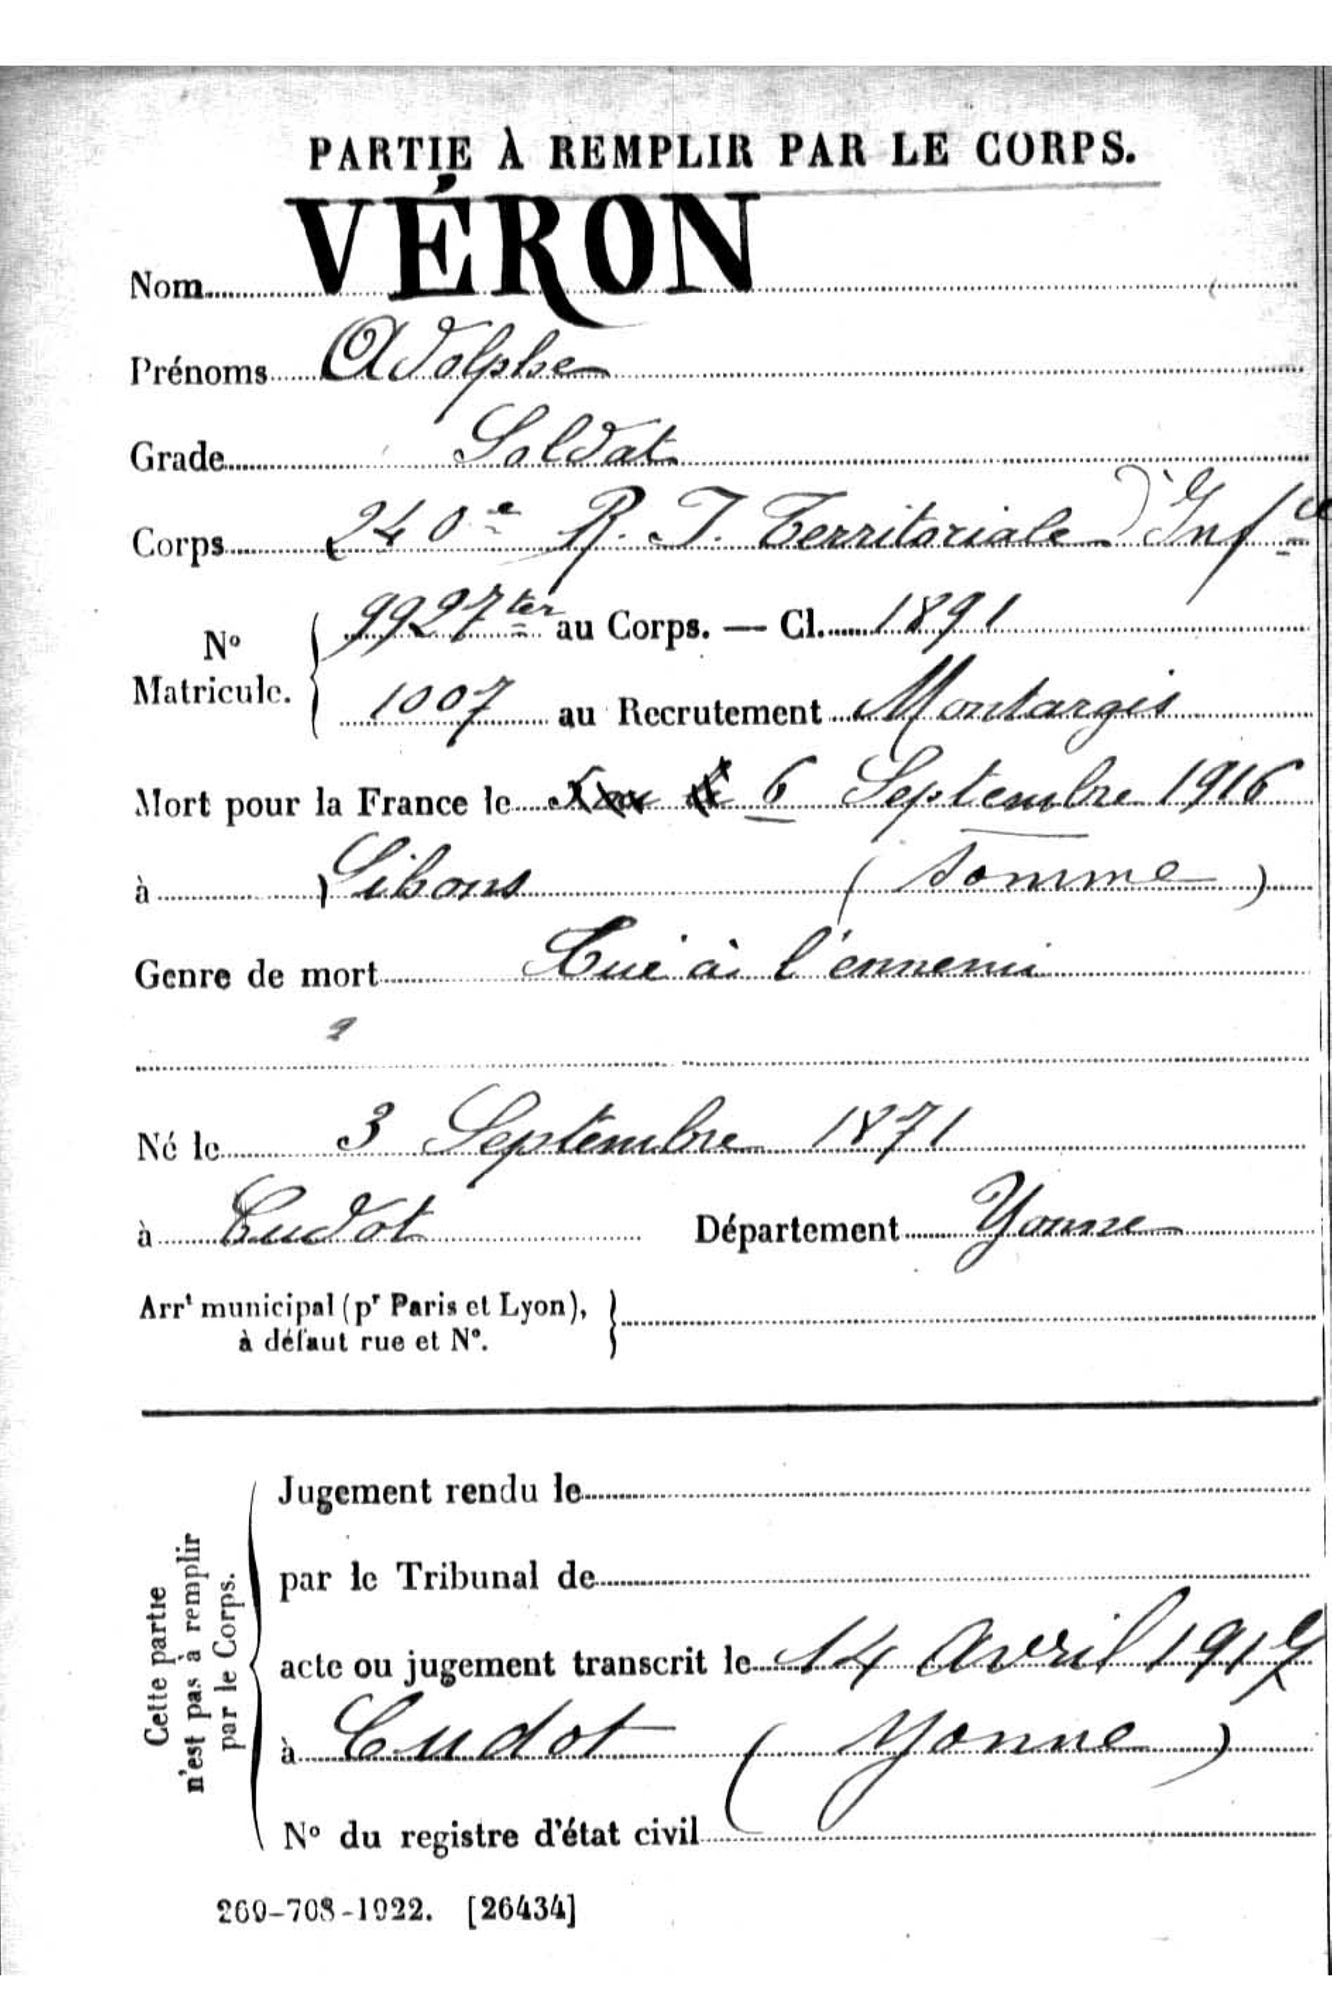 PARTIE À REMPLIR PAR LE CORPS.
Nom VÉRON
Prénoms Adolphe
Grade Soldat
Corps 240e R. I. Territoriale d'Infie
No Matricule. 9927 ter au Corps. — Cl. 1891
1007 au Recrutement Montargis
Mort pour la France le 6 Septembre 1916
à Lihons (Somme)
Genre de mort Tué à l'ennemi
Né le 3 Septembre 1871
à Cudot Département Yonne
Arrt municipal (pr Paris et Lyon),
à défaut rue et No.
Cette partie
n'est pas à remplir
par le Corps.
Jugement rendu le
par le Tribunal de
acte ou jugement transcrit le 14 avril 1917
à Cudot (Yonne)
No du registre d'état civil
269-708-1922. [26434]